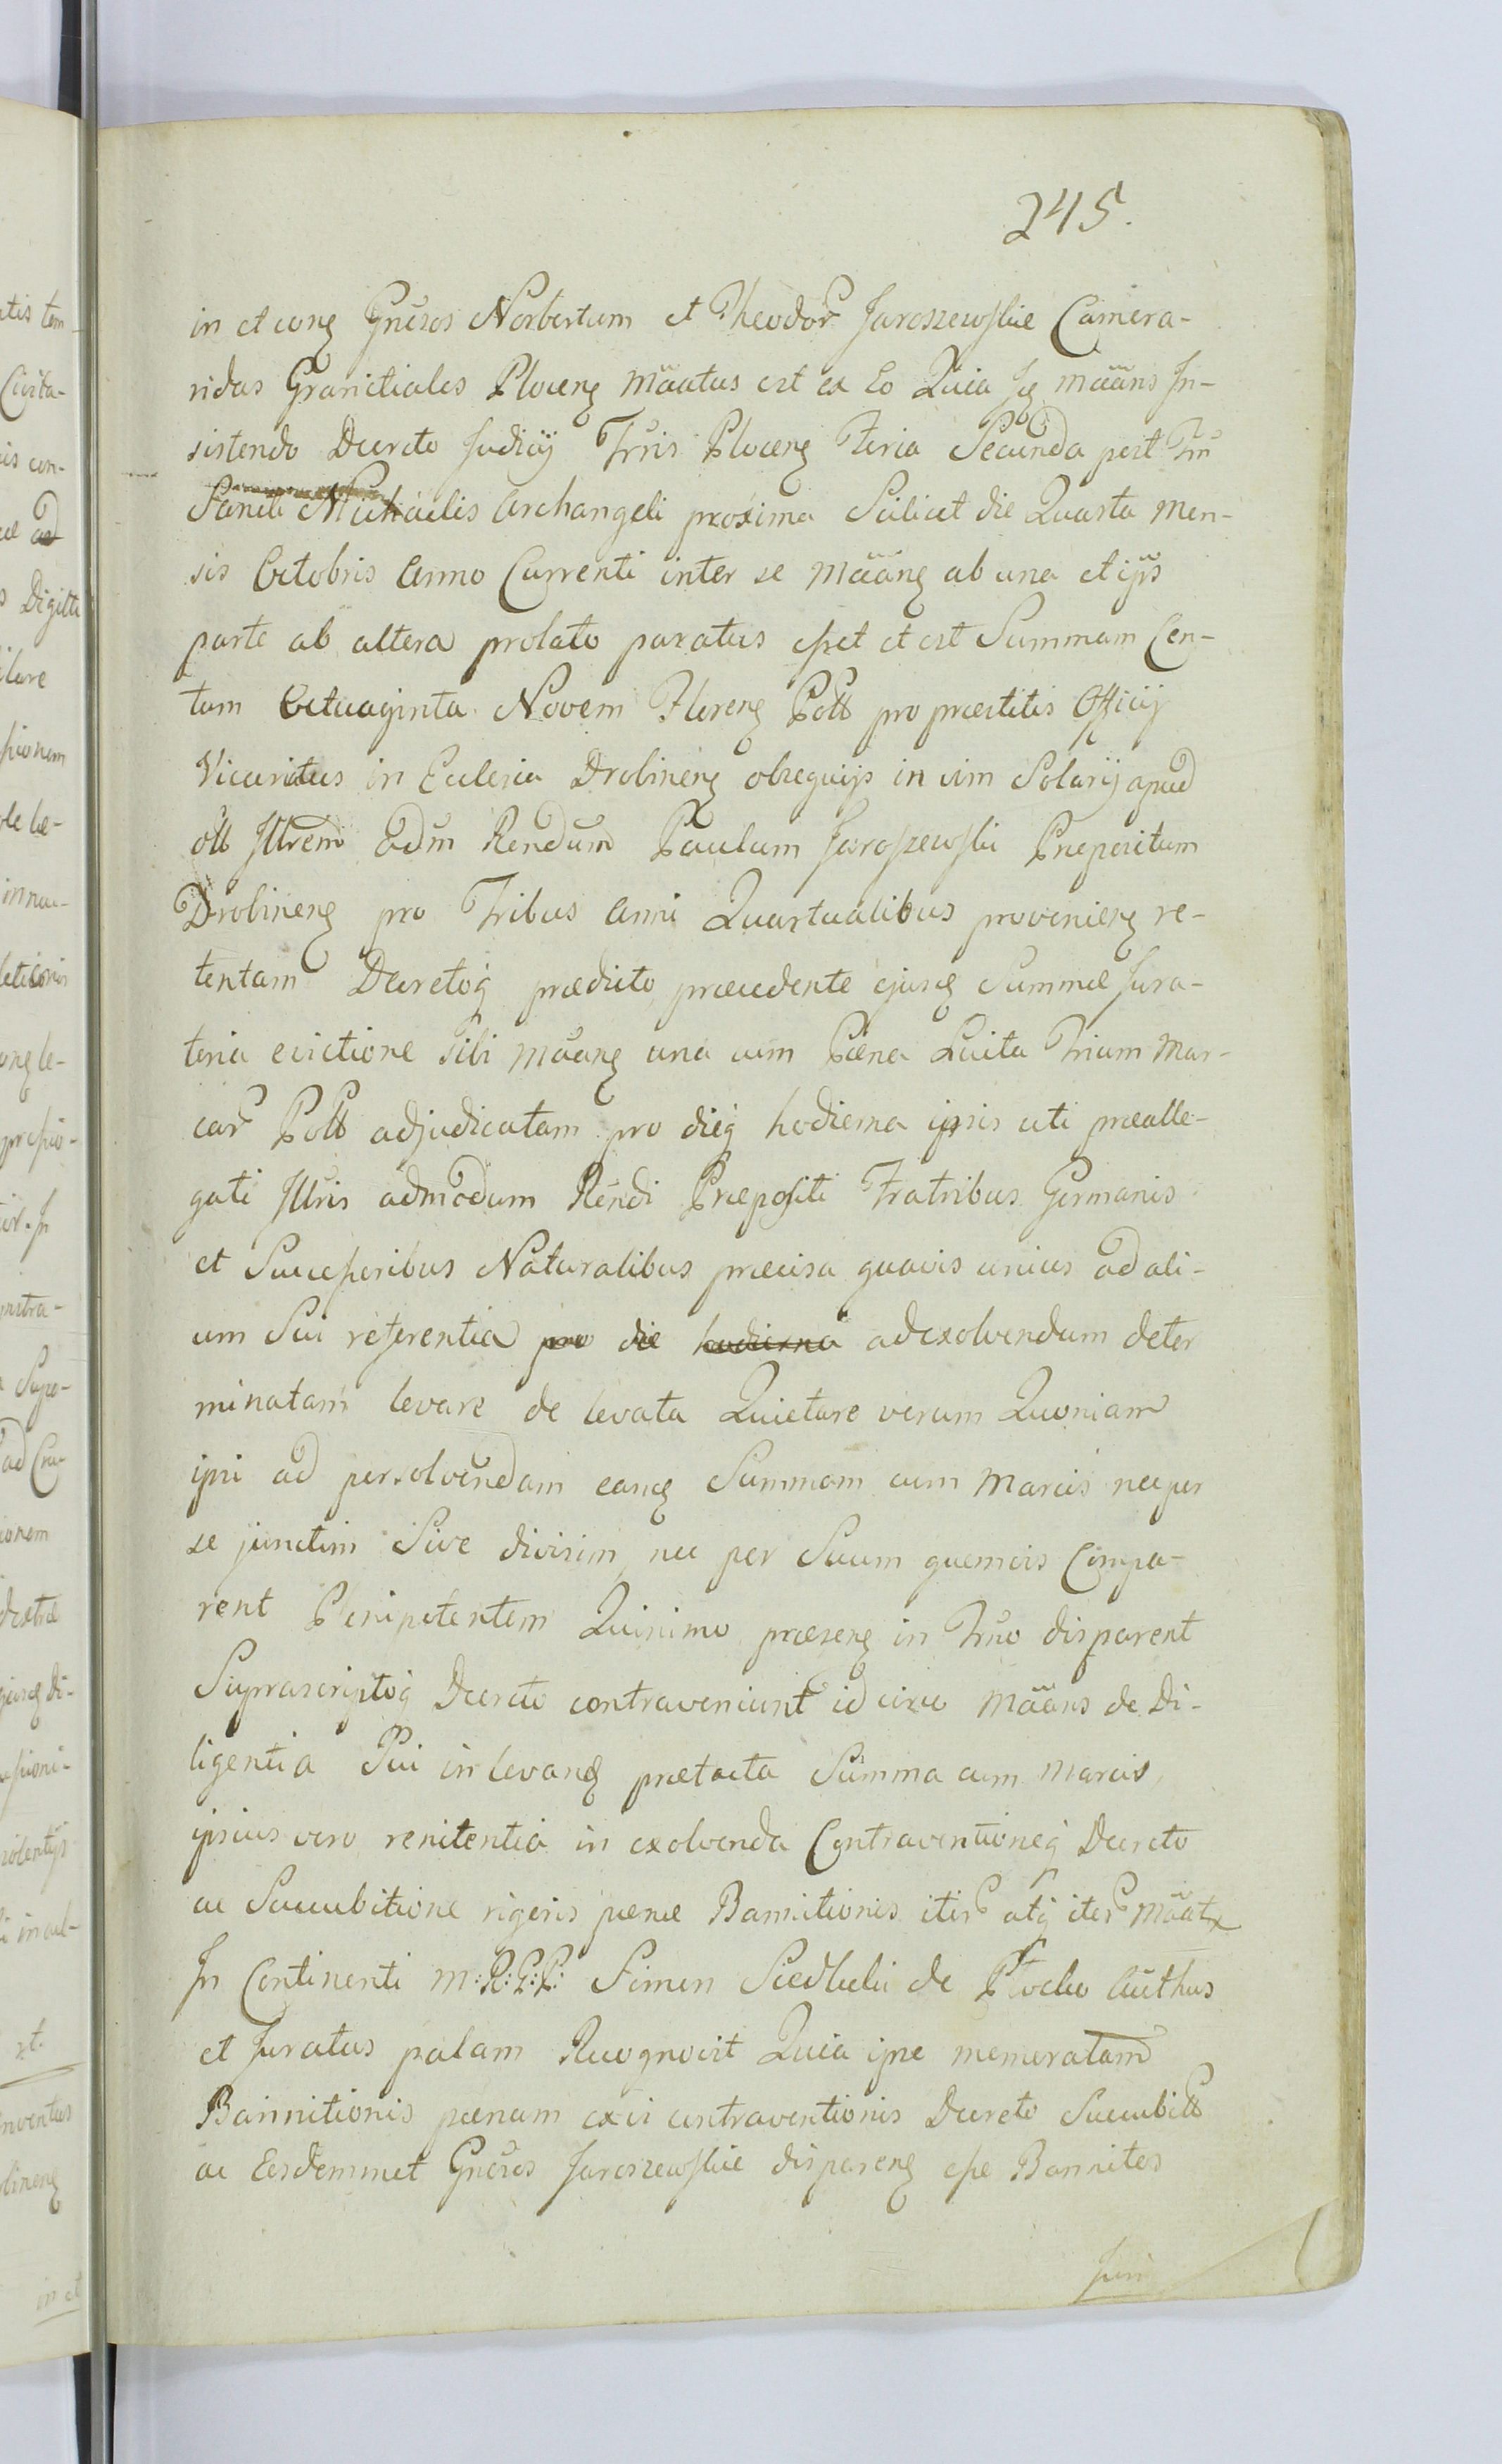 245.
in et cong Gnŭsos Norbertum et Theodor Jaroszewskie Camera-
ridas Granictiales Plocens Mäatus est ex Eo Quia Js mäans In-
sistendo Decreto Judicÿ Trŭis Plocens Feria Secunda post Ftŭ
Sancti Michaelis Archangeli proxima Scilicet die Quarta Men-
sis Octobris Anno Currenti inter se Määng ab una et ijs
parte ab altera prolato paratus esset et est Summam Cen-
tum Octuaginta Novem Floreng Poll pro præstitis Officij
Vicariatus in Eclesia Drobineng obsequijs in vim Solarij apud
oll Jllrem Adm Rendum Paulum Jaroszewski Præpositum
Drobineng pro Tribus Anni Quartualibus provenieng re-
tentam Decretoq prædicto præcedente ejusq Summæ Jura-
toria evictione Sibi määng una cum Pæna Luita Trium Mar-
car Poll adjudicatam pro dieq hodierna ipsis uti prealle-
gati Jllris admodum Rendi Præpositi Fratribus Germanis
et Successoribus Naturalibus præcisa quavis unius ad ali-
um Sui referentia pro die hodierna adexolvendum deter
minatam levare de levata Quietare verum Quoniam
ipsi ad persolvendam eanq Summam cum Marcis nec per
se junctim Sive divisim nec per Suum quemvis Compa-
rent Plenipotentem Quinimo præseng in Trŭo disparent
Suprascriptoq Decreto contraveniunt id circo Määns de Di-
ligentia Sui in levang prætacta Summa cum Marcis
ipsius vero renitentia in exolvenda Contraventioneq Decreto
ac Succubitione rigoris pænæ Bannitionis iter atq iter määtx
In Continenti M:R:G:P: Simon Siedlecki de Plocko Authus
et Juratus palam Recognovit Quia ipse memoratam
Bannitionis pænam ex vi contraventionis Decreto Succubitt
ac Eosdemmet Gnŭsos Jaroszewskie dispareng esse Bannitos
Juri